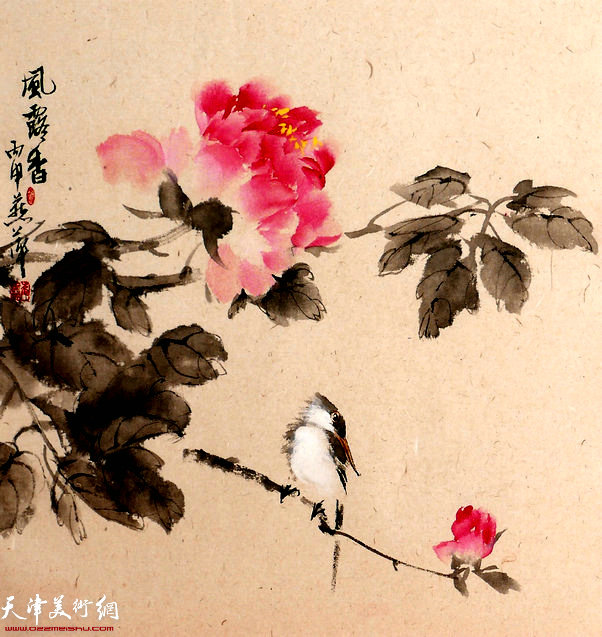 風露香
丙申燕萍
天津美術網
www.022meishu.com